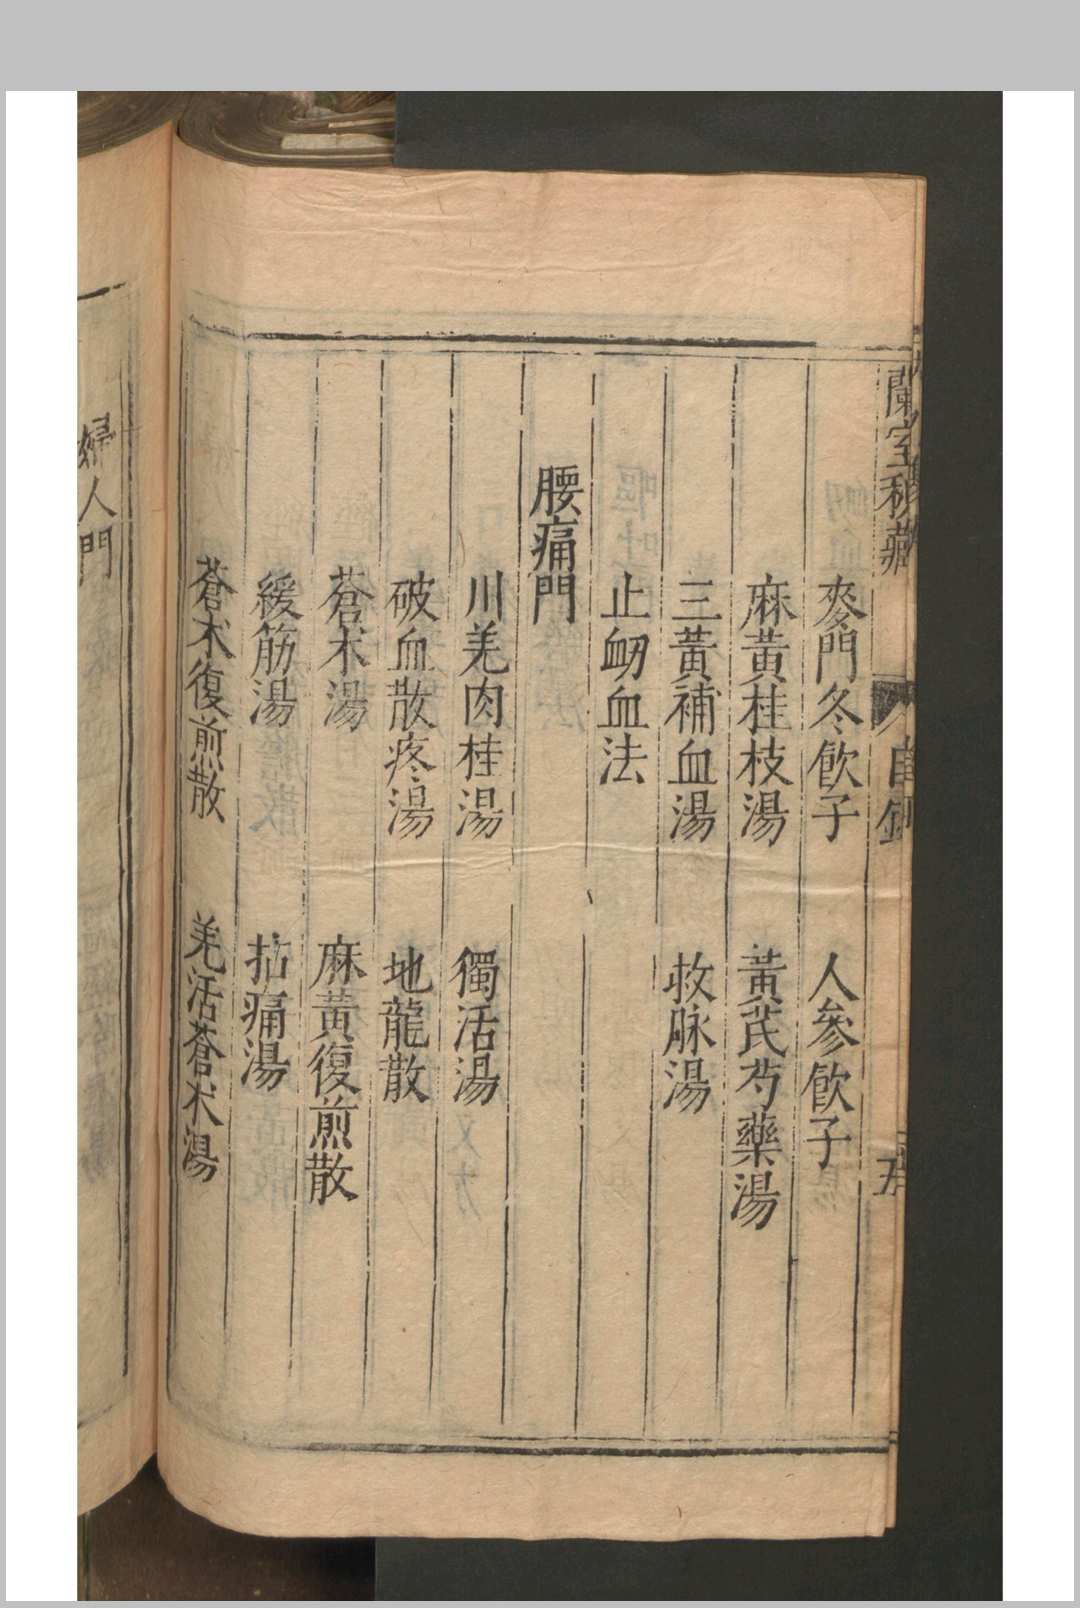 蘭室秘藏 目録 五
麥門冬飲子 人參飲子
麻黃桂枝湯 黃芪芍藥湯
三黃補血湯 救脉湯
止衂血法
腰痛門
川羌肉桂湯 獨活湯
破血散疼湯 地龍散
蒼朮湯 麻黃復煎散
緩筋湯 拈痛湯
蒼朮復煎散 羌活蒼朮湯
婦人門